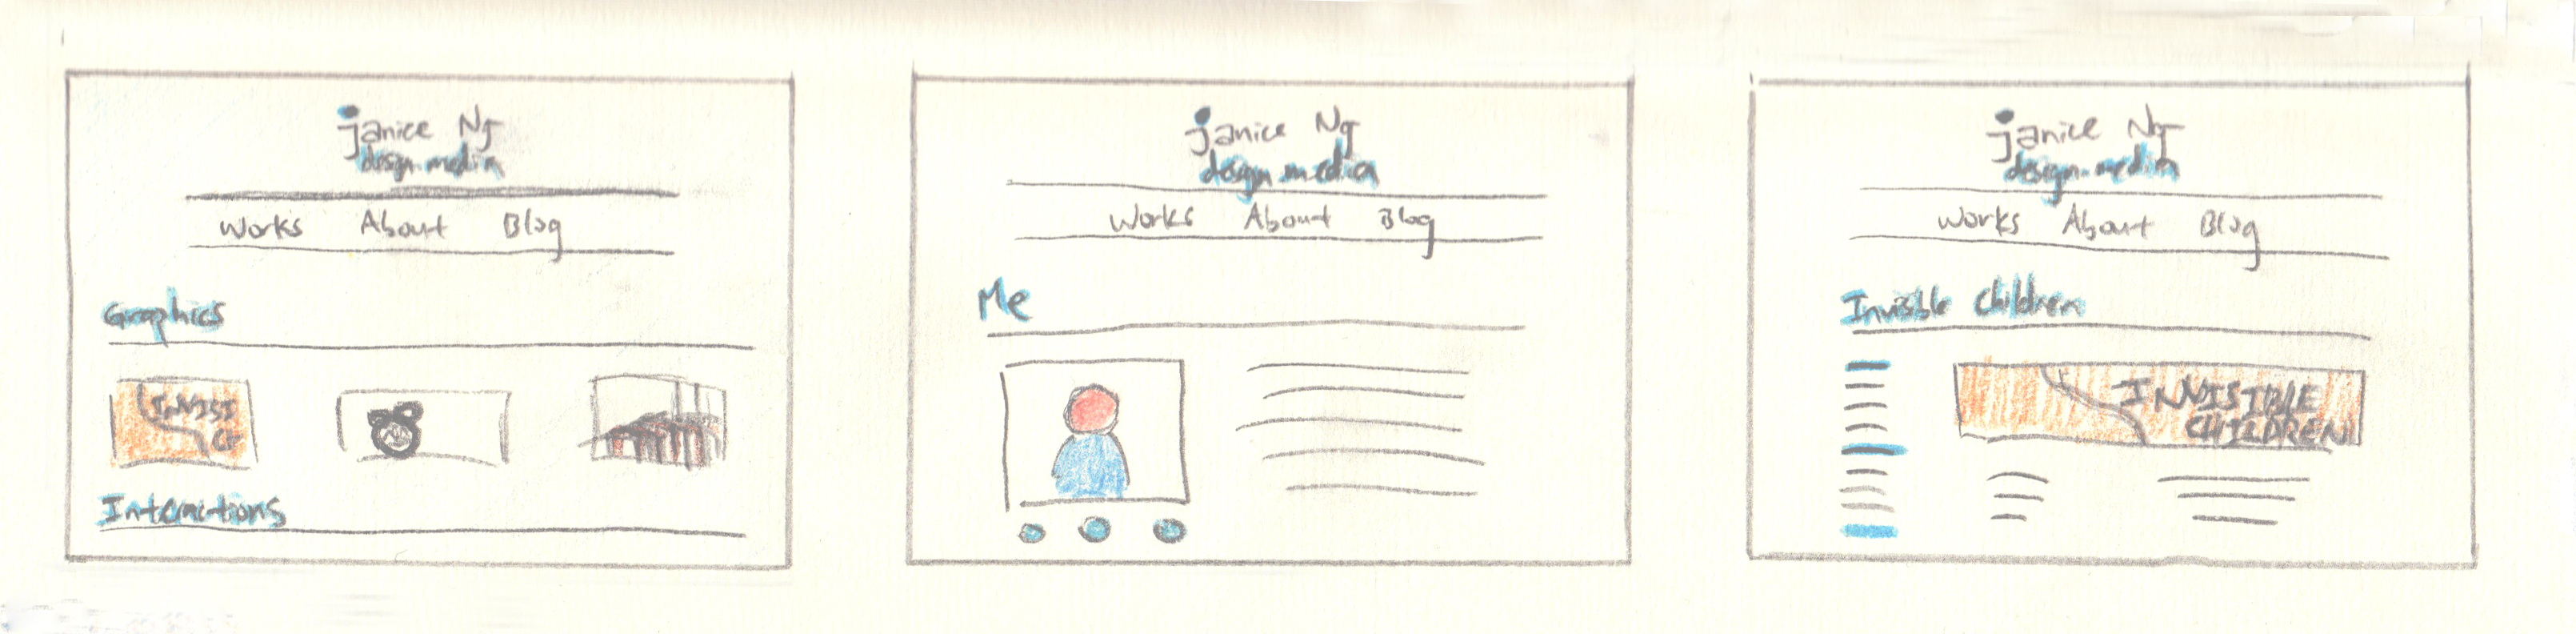 janice Ng
design.media
Works About Blog
Graphics
INVISI
CH
Interactions
janice Ng
design.media
Works About Blog
Me
janice Ng
design.media
Works About Blog
Invisible Children
INVISIBLE
CHILDREN